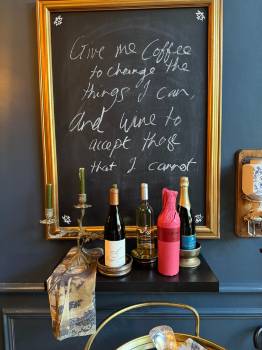 Give me Coffee
to change the
things I can,
And wine to
accept those
that I cannot.